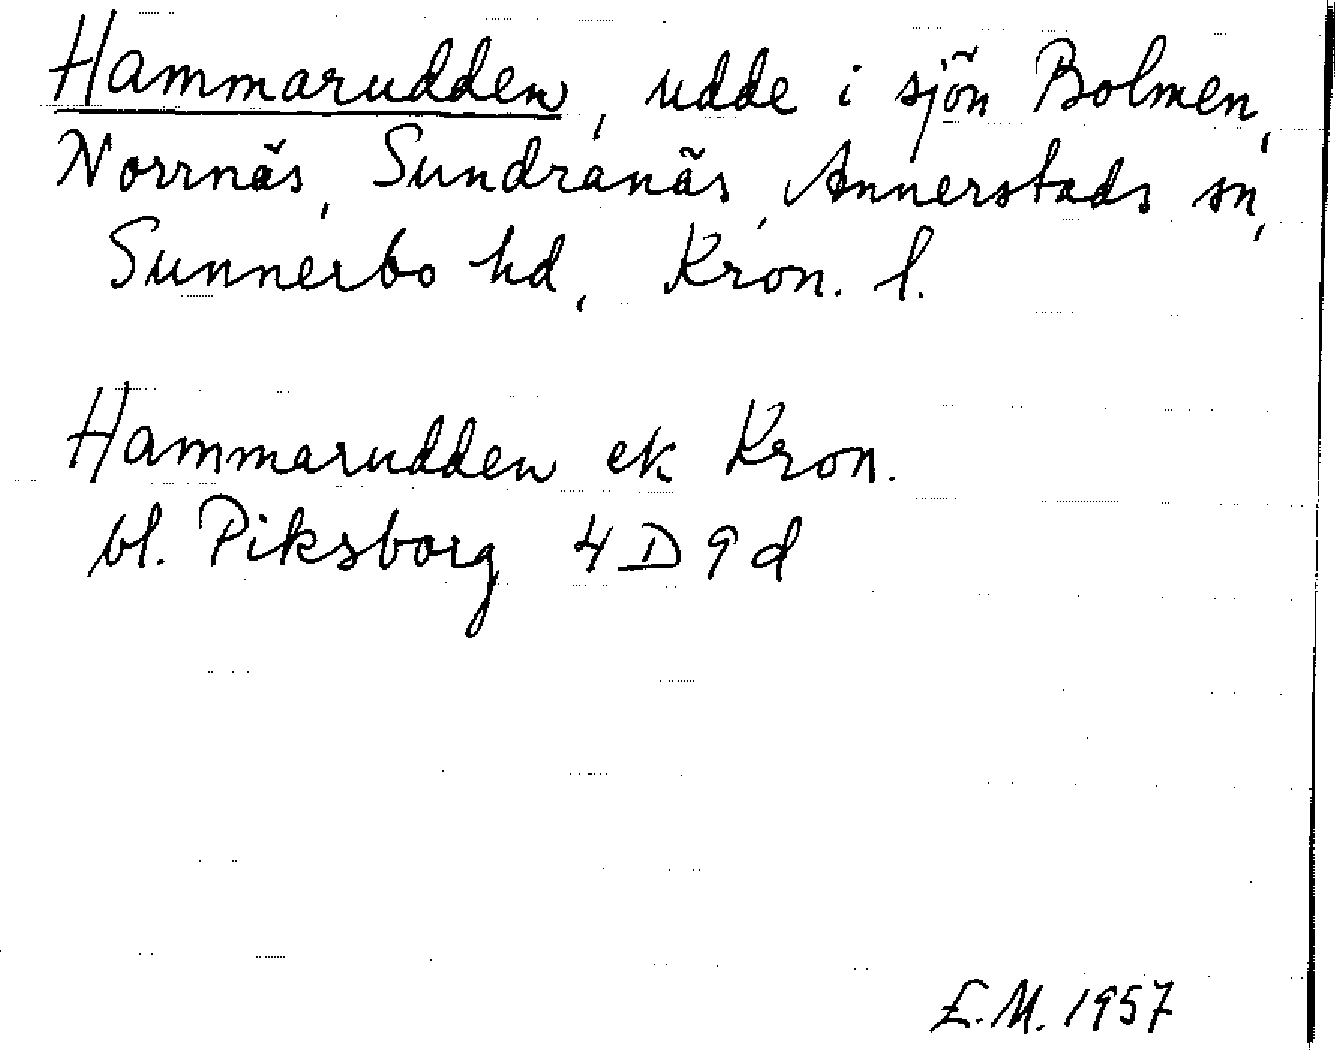 Hammarudden, udde i sjön Bolmen,
Norrnäs, Sundranäs, Annerstads sn,
Sunnerbo hd, Kron. l.
Hammarudden ek Kron.
bl. Piksborg 4D9d
L.M. 1957